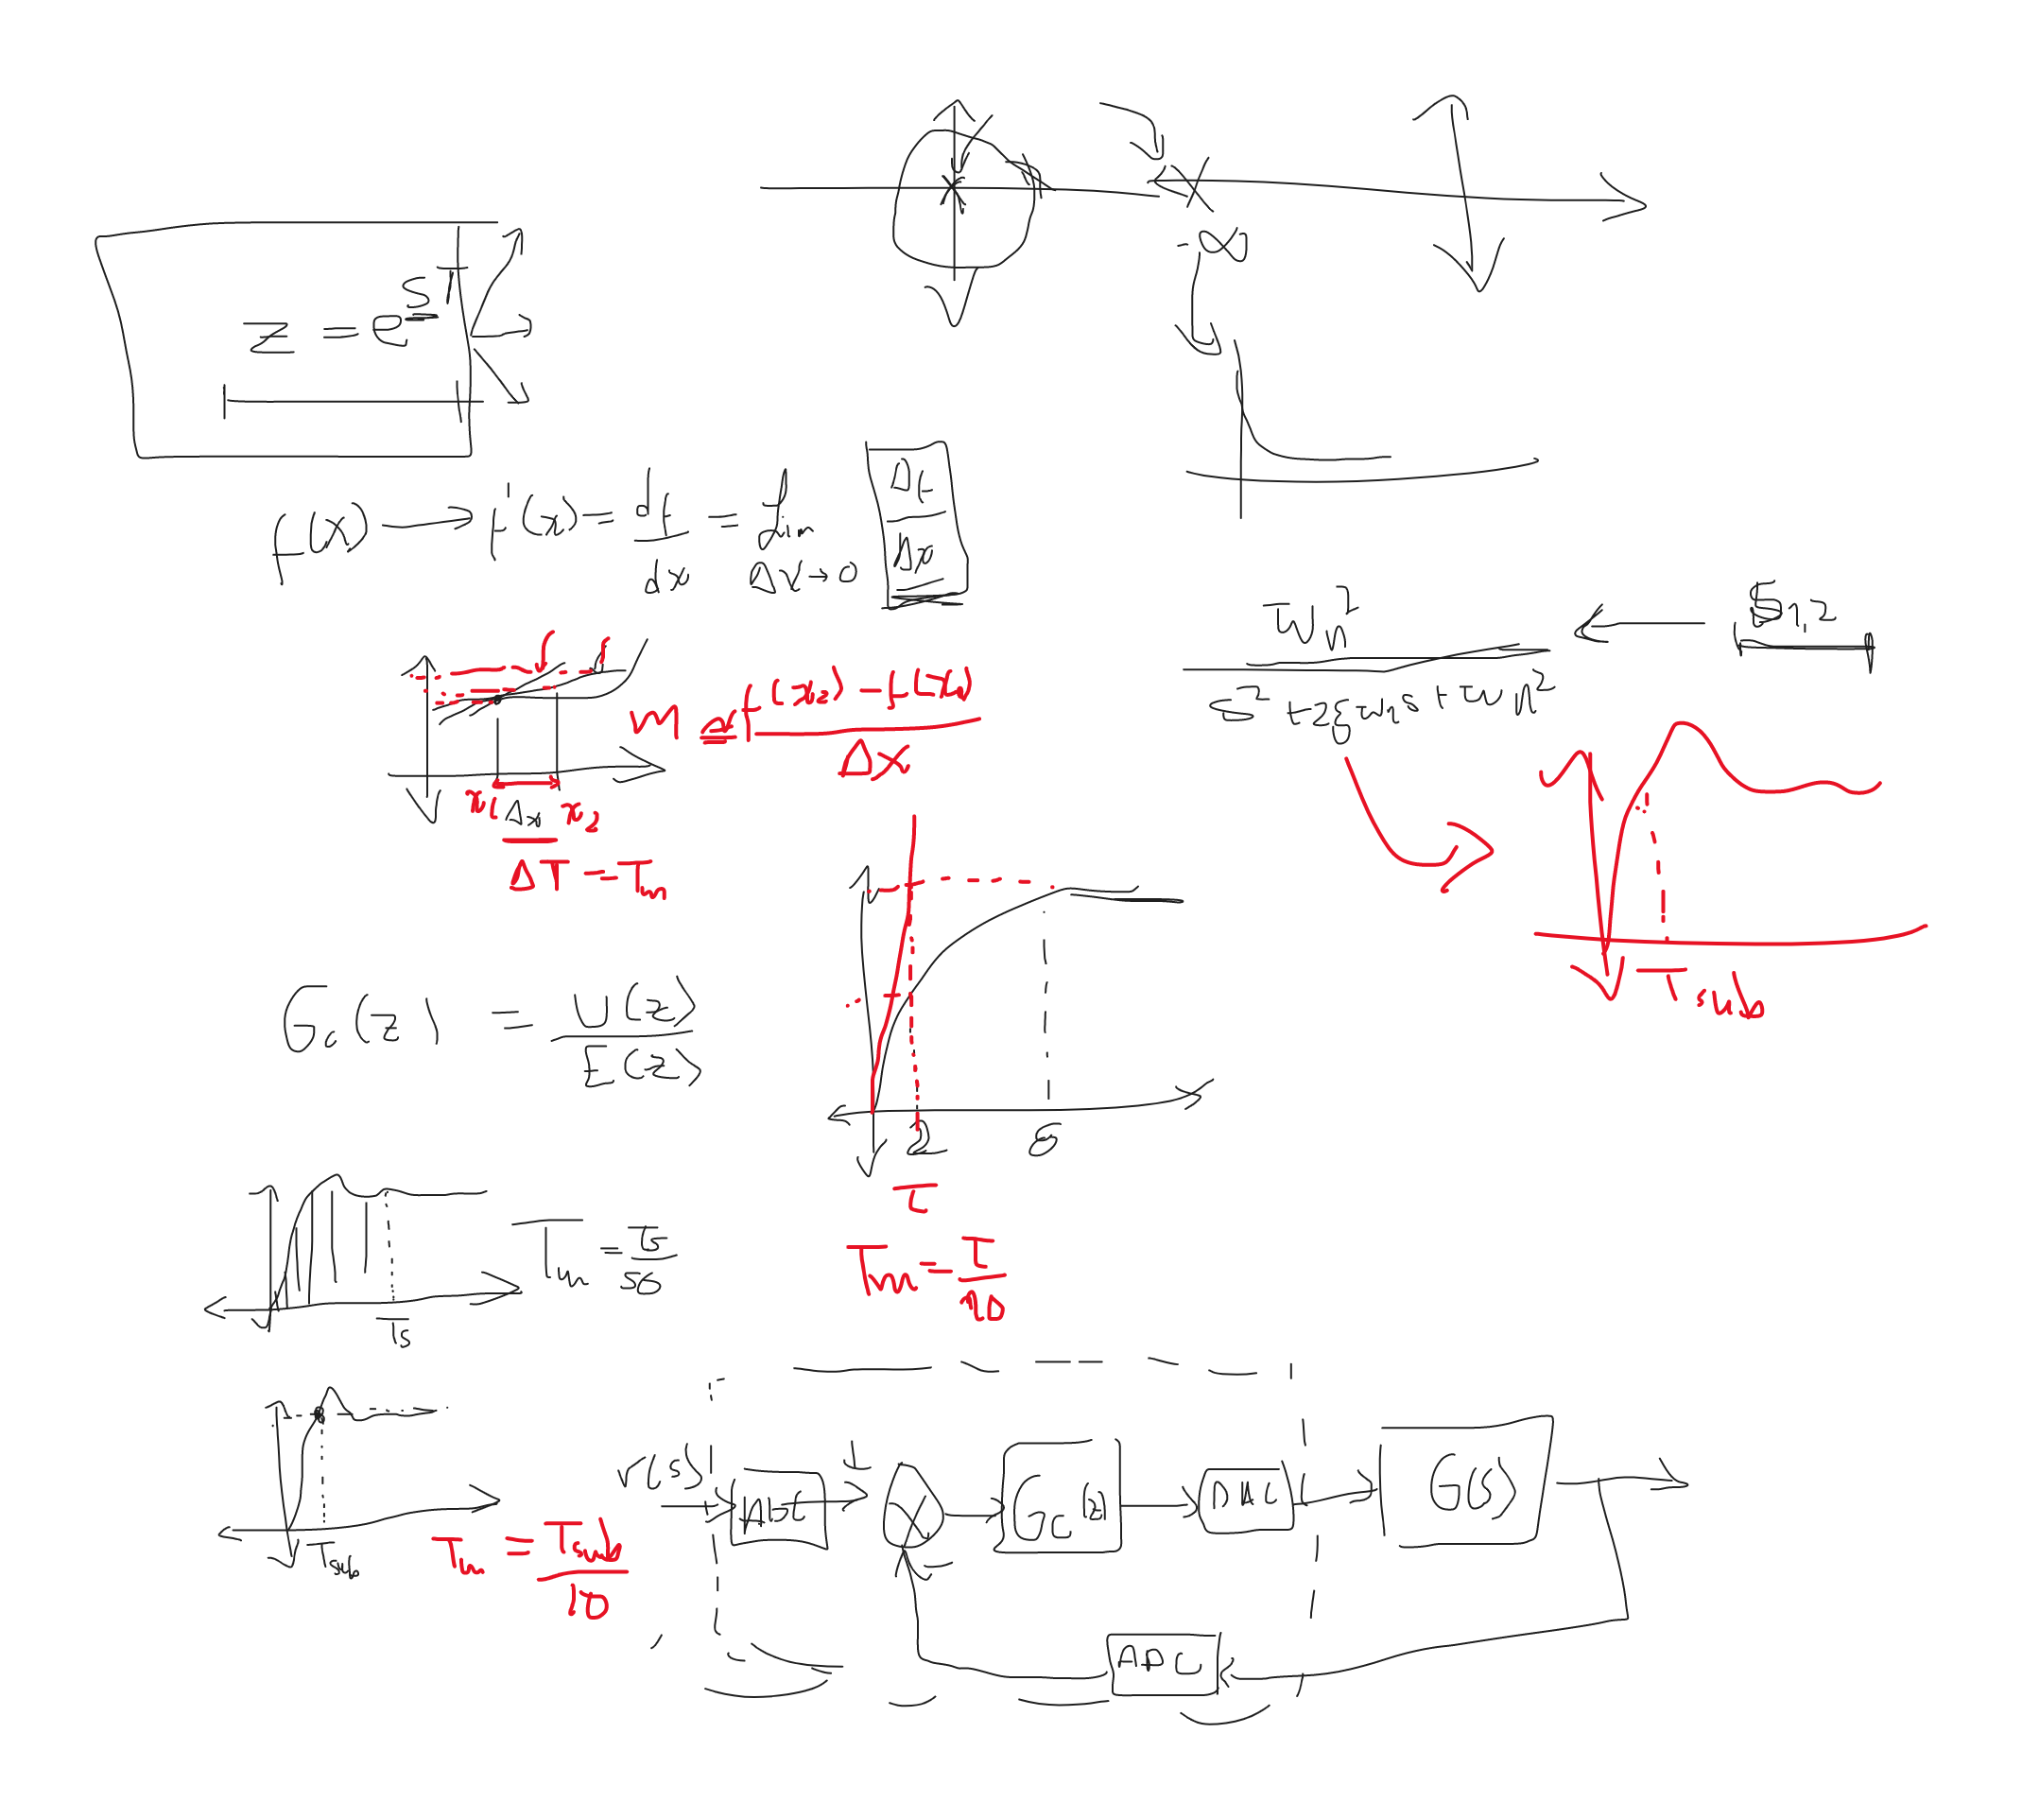 -∞
z = e^{sT}
f(x) → f'(x) = df/dx = lim Δx→0 Δf/Δx
Wn² / s² + 2ξwns + wn²
S1,2
m = f(x2) - f(x1) / Δx
x1 Δx x2
ΔT = Tm
Tsub
Gc(z) = U(z) / E(z)
2
τ
Tm = τ/10
Tm = Ts/50
Ts
Tsub
Tm = Tsub/10
r(s)
ADC
+
-
Gc(z)
DAC
G(s)
ADC